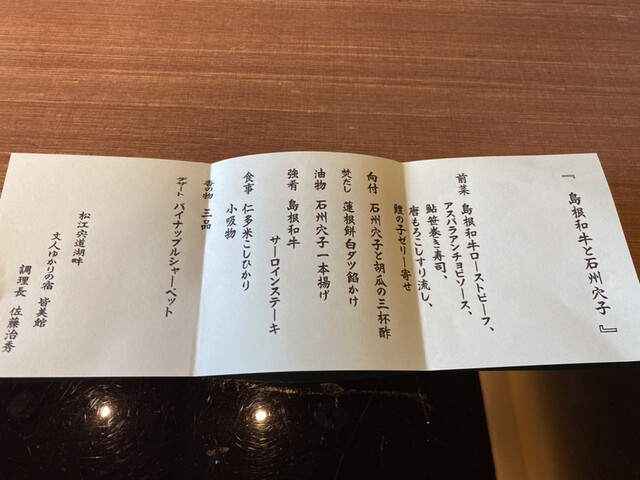 『島根和牛と石州穴子』
前菜 島根和牛ローストビーフ、
アスパラアンチョビソース、
鮎笹巻き寿司、
唐もろこしすり流し、
鱧の子ゼリー寄せ
向付 石州穴子と胡瓜の三杯酢
焚だし 蓮根餅白ダツ餡かけ
油物 石州穴子一本揚げ
強肴 島根和牛
サーロインステーキ
食事 仁多米こしひかり
小吸物
香の物 三品
デザート パイナップルシャーベット
松江宍道湖畔
文人ゆかりの宿 皆美館
調理長 佐藤治秀